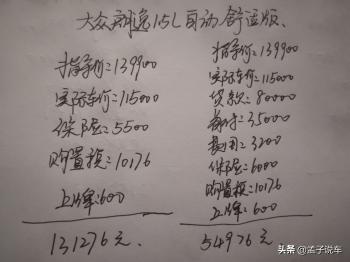 大众朗逸1.5L自动舒适版、
指导价=139900
实际车价=115000
保险=5500
购置税=10176
上牌:600
131276元.
指导价=139900
实际车价=115000
贷款=80000
首付=35000
费用=3200
保险=6000
购置税=10176
上牌=600
54976元
头条@孟子说车